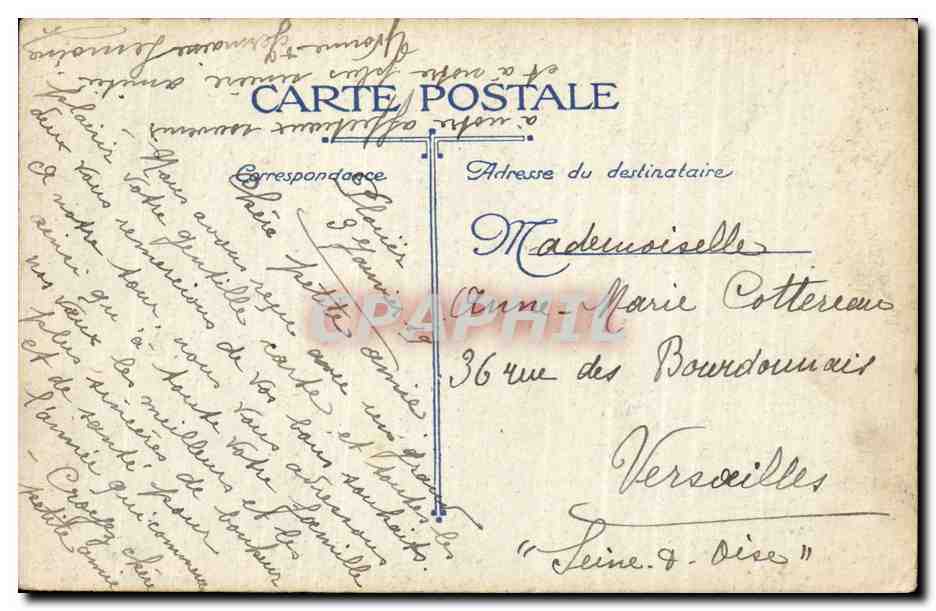 CARTE POSTALE
Correspondance
Adresse du destinataire
Mademoiselle
Anne-Marie Cottereau
36 rue des Bourdonnais
Versailles
"Seine-&-Oise"
9 Janvier 19
Chère petite amie,
Nous avons reçu avec un grand
plaisir votre gentille carte et toutes les
deux vous remercions de vos bons souhaits.
A notre tour, nous vous adressons
ainsi qu'à toute votre famille
nos vœux les meilleurs et les
plus sincères de bonheur
et de santé pour
l'année qui commence
- Croyez chère
petite amie
à notre affectueux souvenir
et à notre plus sincère amitié.
Yvonne & Germaine Lemoine
CPAPHIL